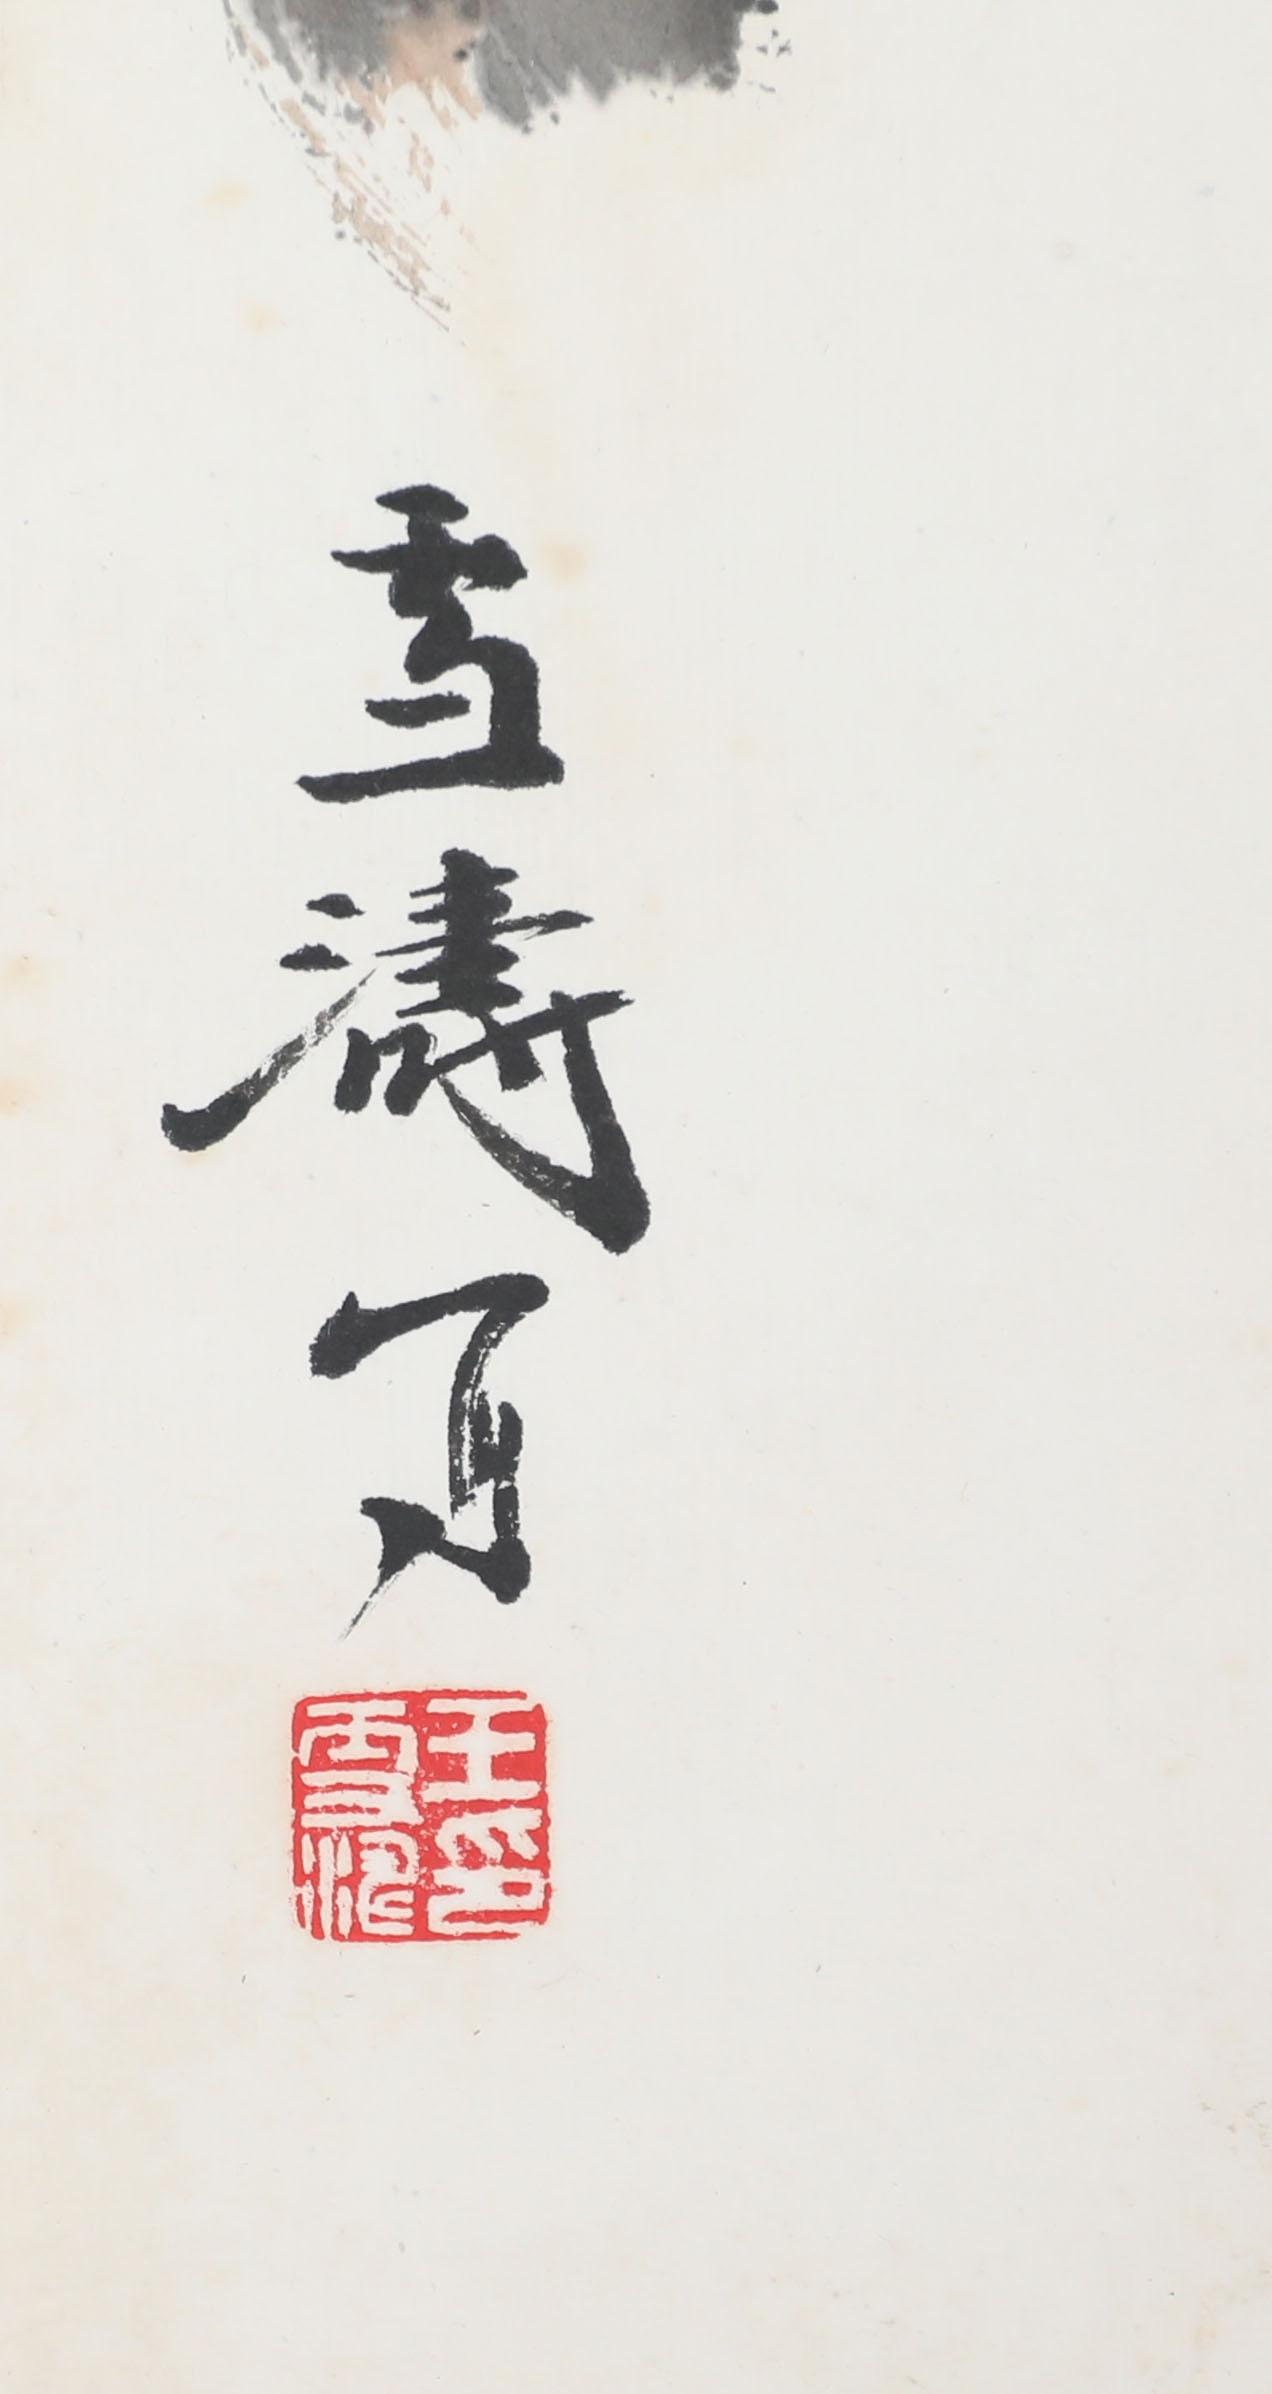 雪濤寫
王雪濤印